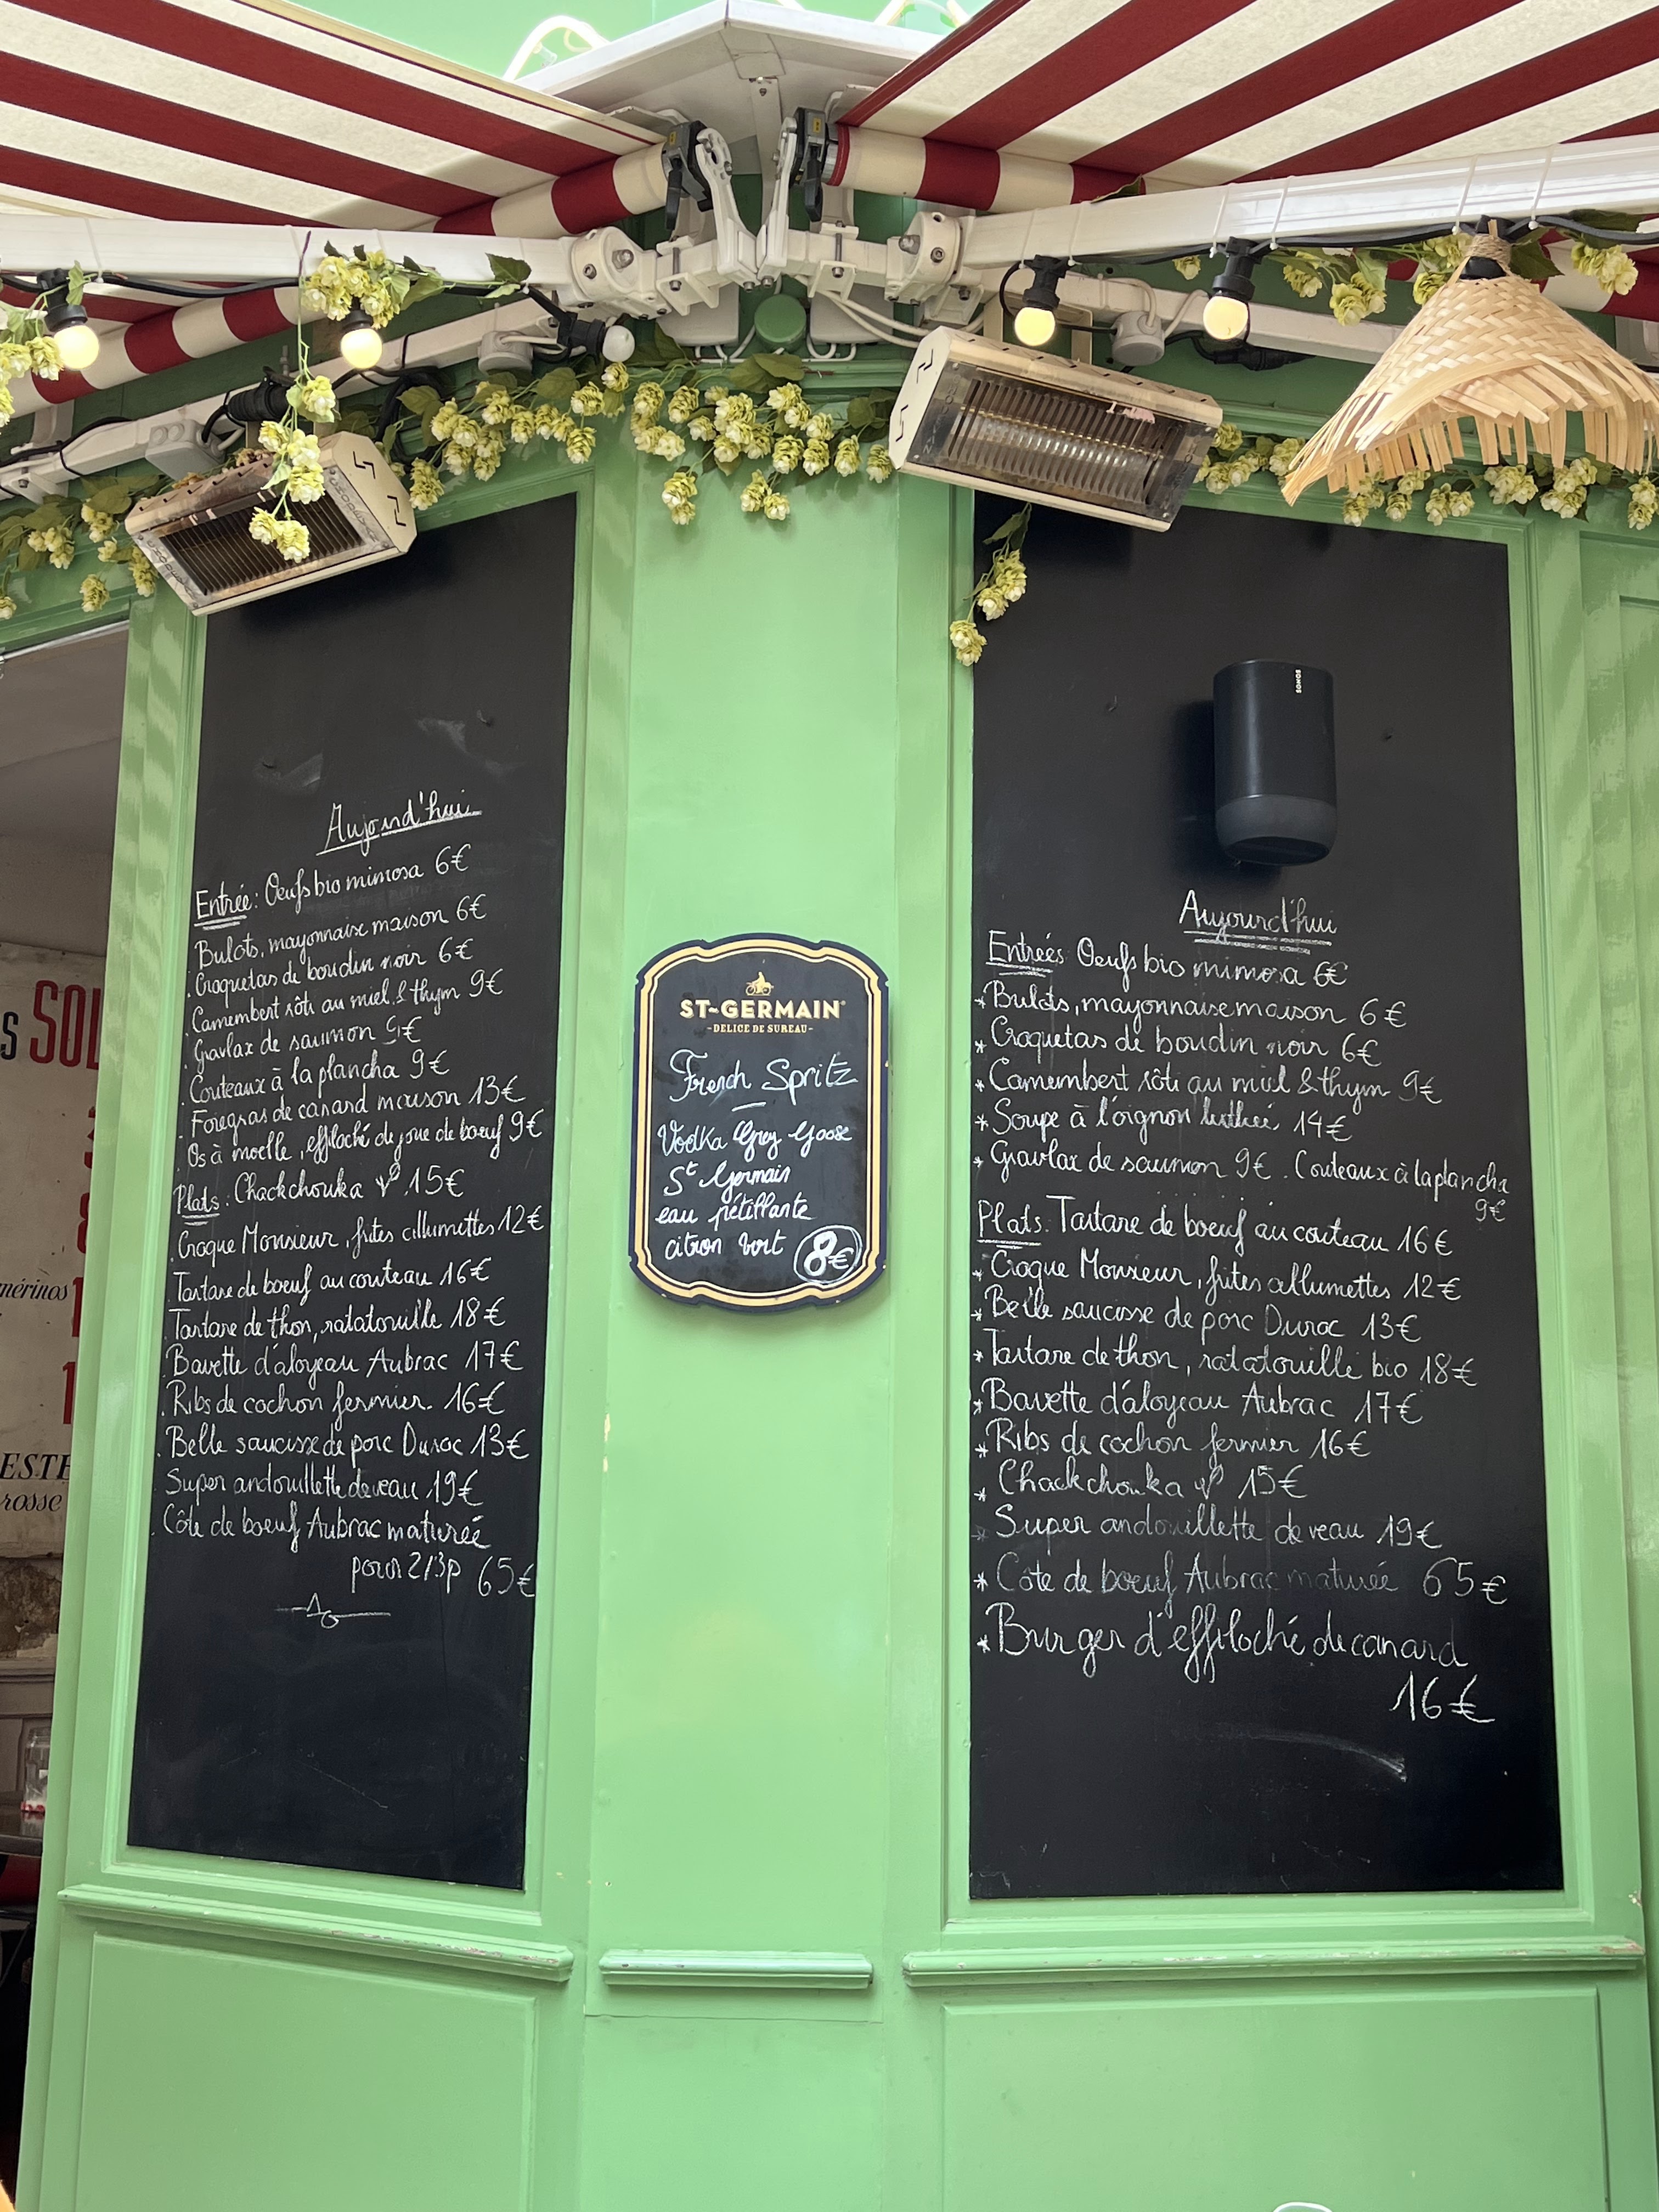 Aujourd'hui
Entrée: Oeufs bio mimosa 6€
. Bulots, mayonnaise maison 6€
. Croquetas de boudin noir 6€
. Camembert rôti au miel & thym 9€
. Gravlax de saumon 9€
. Couteaux à la plancha 9€
. Foiegras de canard maison 13€
. Os à moelle, effiloché de joue de boeuf 9€
Plats: Chackchouka V 15€
. Croque Monsieur, frites allumettes 12€
. Tartare de boeuf au couteau 16€
. Tartare de thon, ratatouille 18€
. Bavette d'aloyeau Aubrac 17€
. Ribs de cochon fermier. 16€
. Belle saucisse de porc Duroc 13€
. Super andouillette de veau 19€
. Côte de boeuf Aubrac maturée
pour 2/3p 65€
ST-GERMAIN
-DELICE DE SUREAU-
French Spritz
Vodka Grey Goose
St Germain
eau pétillante
citron vert 8€
SONOS
Aujourd'hui
Entrées: Oeufs bio mimosa 6€
* Bulots, mayonnaise maison 6€
* Croquetas de boudin noir 6€
* Camembert rôti au miel & thym 9€
* Soupe à l'oignon 14€
* Gravlax de saumon 9€ . Couteaux à la plancha
9€
Plats: Tartare de boeuf au couteau 16€
* Croque Monsieur, frites allumettes 12€
* Belle saucisse de porc Duroc 13€
* Tartare de thon, ratatouille bio 18€
* Bavette d'aloyeau Aubrac 17€
* Ribs de cochon fermier 16€
* Chackchouka V 15€
* Super andouillette de veau 19€
* Côte de boeuf Aubrac maturée 65€
* Burger d'effiloché de canard
16€
S SOL
mérinos
ESTE
rosse